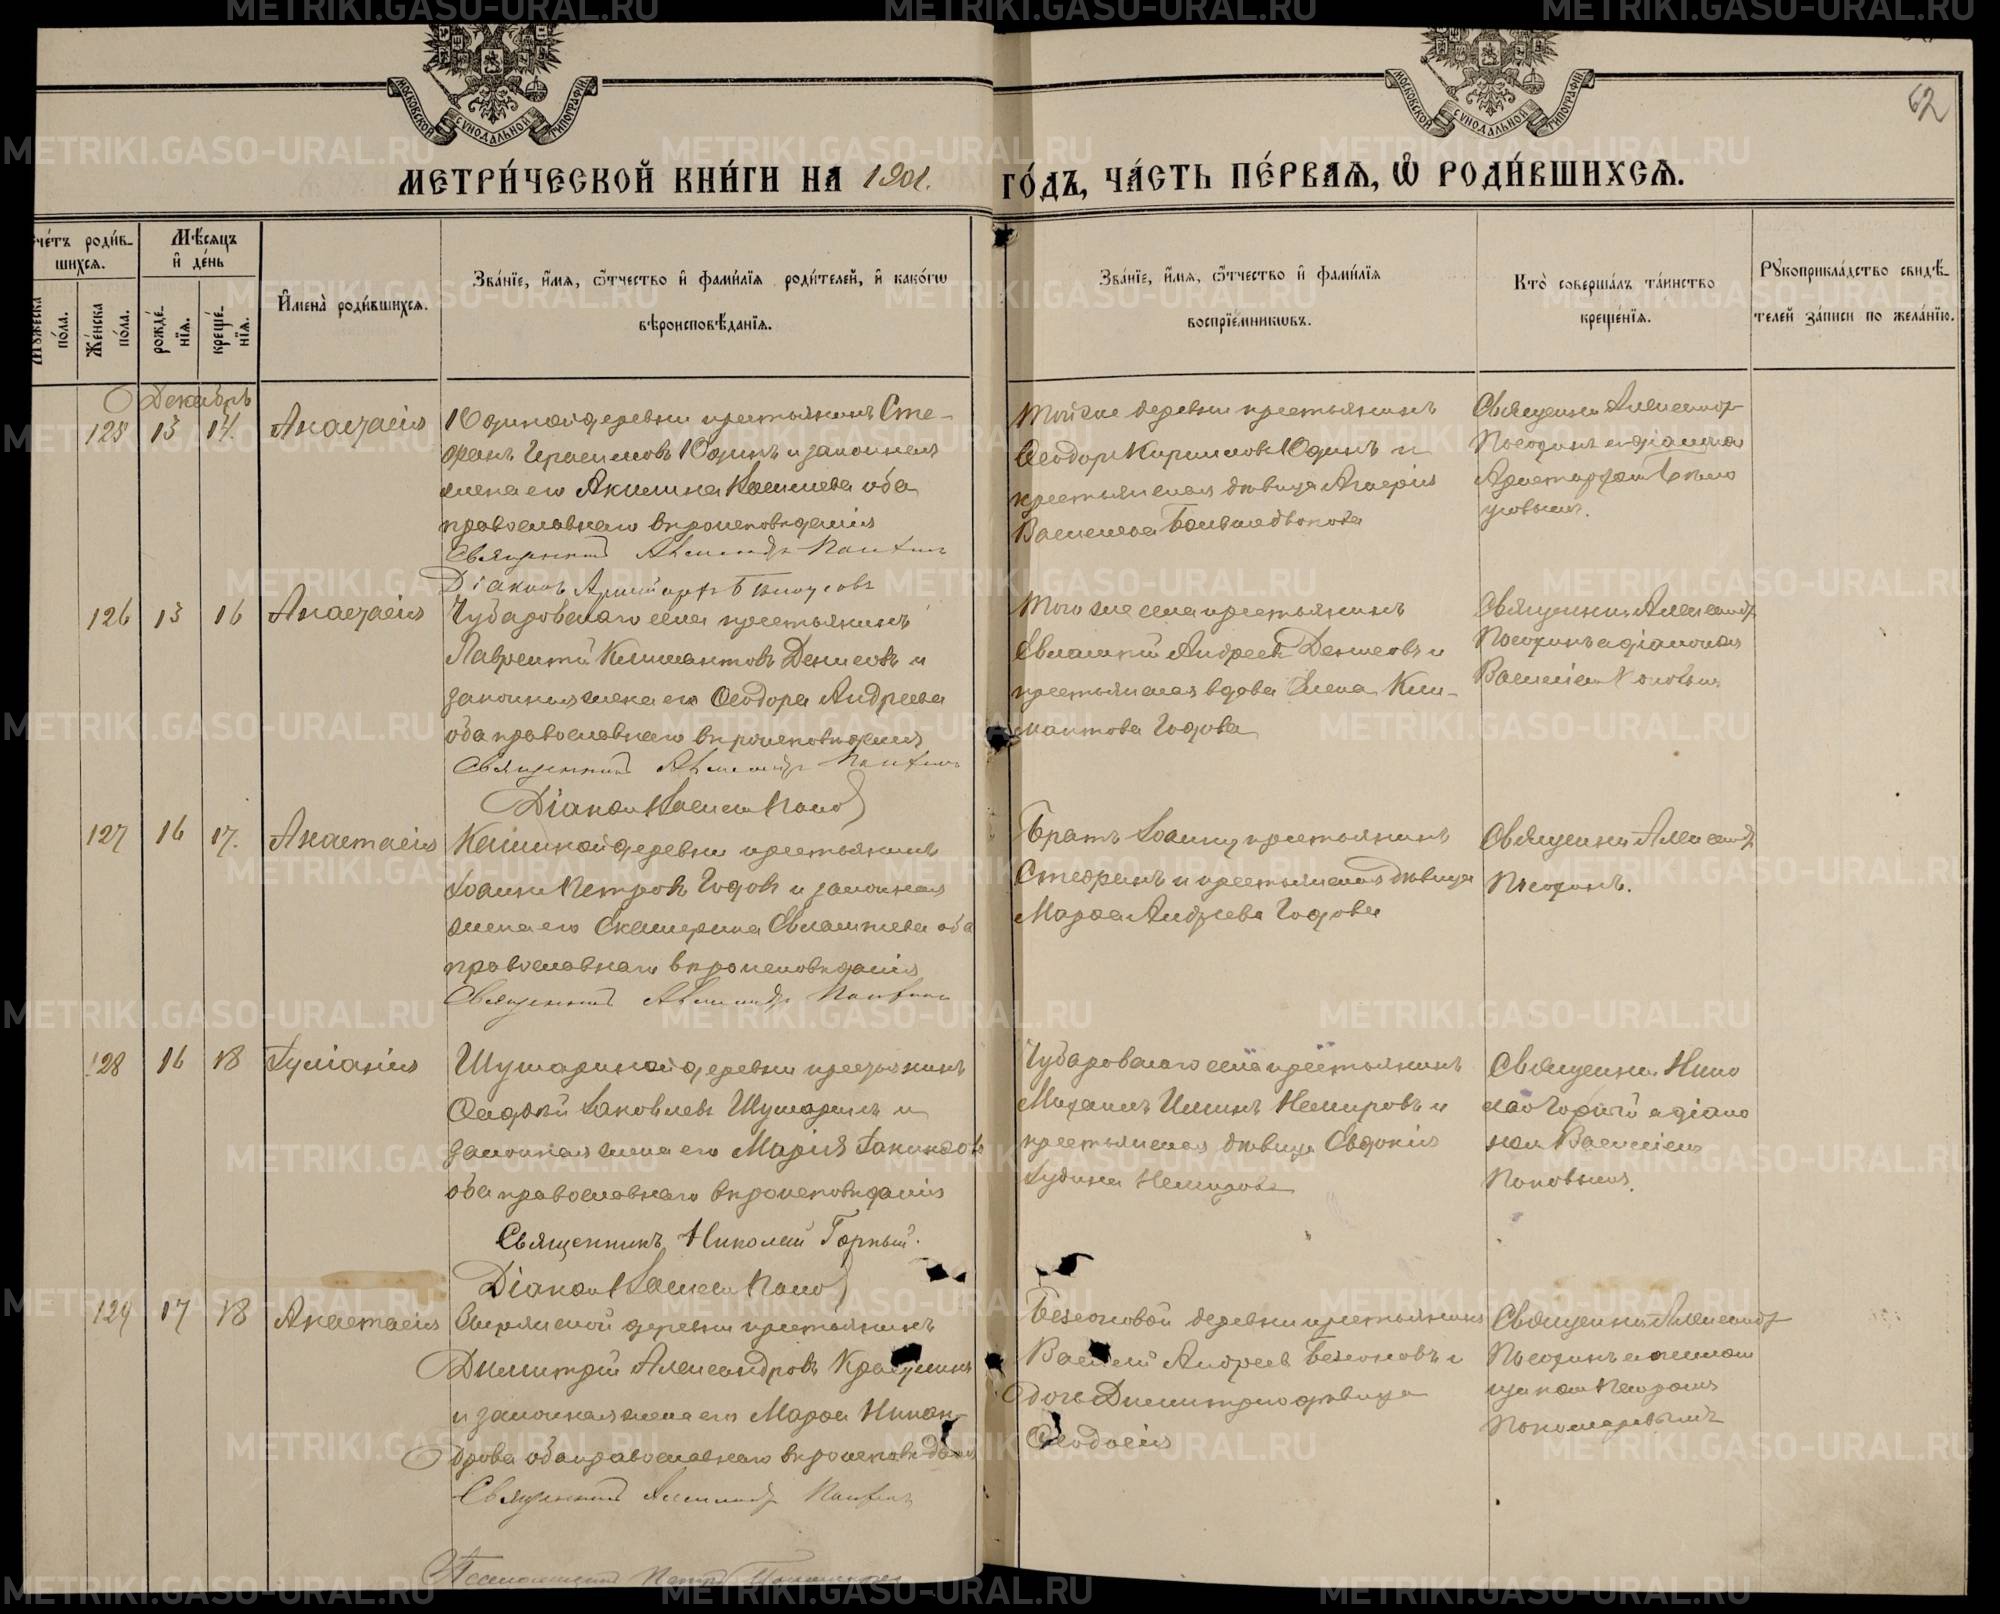 МОСКОВСКОЙ СѴНОДАЛЬНОЙ ТИПОГРАФІИ
МОСКОВСКОЙ СѴНОДАЛЬНОЙ ТИПОГРАФІИ
62
МЕТРИ́ЧЕСКОЙ КНИ́ГИ НА 1901. ГО́ДЪ, ЧА́СТЬ ПЕ́РВАѦ, Ѽ РОДИ́ВШИХСѦ.
чéтъ роди́в-
шихсѧ.
Мѣ́сѧцъ
и҆ дéнь
Мꙋ́жеска по́ла.
Же́нска по́ла.
рождé-нїѧ.
крещé-нїѧ.
И҆менà роди́вшихсѧ.
Звáнїе, и҆́мѧ, ѻ҆́тчество и҆ фами́лїѧ роди́телей, и҆ како́гѡ
вѣроисповѣ́данїѧ.
Звáнїе, и҆́мѧ, ѻ҆́тчество и҆ фами́лїѧ
воспрїе́мникѡвъ.
Кто̀ соверша́лъ та́инство
креще́нїѧ.
Рꙋкоприклáдство свидѣ́-
телей за́писи по жела́нїю.
Декабрь
125 13 14. Анастасія
Юдиной деревни крестьянинъ Сте-
фанъ Герасимовъ Юдинъ и законная
жена его Акилина Васильева оба
православнаго вѣроисповѣданія
Священникъ Александръ
Діаконъ Аристархъ Бѣлоусовъ
Той же деревни крестьянинъ
Ѳеодоръ Кириловъ Юдинъ и
крестьянская дѣвица
Васильева
Священник Александр
и діаконом
Аристархом Бѣло
усовым.
126 13 16 Анастасія
Чубаровскаго села крестьянинъ
Лаврентій Климантовъ Денисовъ и
законная жена его Ѳеодора Андреева
оба православнаго вѣроисповѣданія
Священникъ Александръ
Діакон Василій Попов
Того же села крестьянинъ
Евлампій Андреевъ Денисовъ и
крестьянская вдова Елена Кли-
мантова Годова
Священник Александр
с діаконом
Василіем Поповым
127 16 17. Анастасія
деревни крестьянинъ
Іоанн Петровъ Годовъ и законная
жена его Екатерина Евлампіева оба
православнаго вѣроисповѣданія
Священникъ Александръ
Братъ Іоанну крестьянинъ
Стефанъ и крестьянская дѣвица
Марѳа Андреева Годова
Священник Александр
128 16 18 Іуліанія
Шушариной деревни крестьянинъ
Ѳаддей Іаковлевъ Шушаринъ и
законная жена его Марія
оба православнаго вѣроисповѣданія
Священникъ Николай Горный.
Діакон Василій Попов
Чубаровскаго села крестьянинъ
Михаилъ Немировъ и
крестьянская дѣвица Евдокія
Немирова
Священник Нико
лай Горный с діако
ном Василіем
Поповым.
129 17 18 Анастасія
деревни крестьянинъ
Димитрій Александровъ
и законная жена его Марѳа Никан-
дрова оба православнаго вѣроисповѣданія
Священникъ Александръ
Псаломщикъ Петръ Пономарев
Безсоновой деревни крестьянинъ
Василій Андреев Безсоновъ и
дочь Димитрія дѣвица
Ѳеодосія
Священник Александр
с псалом
щиком Петром
Пономаревымъ
METRIKI.GASO-URAL.RU